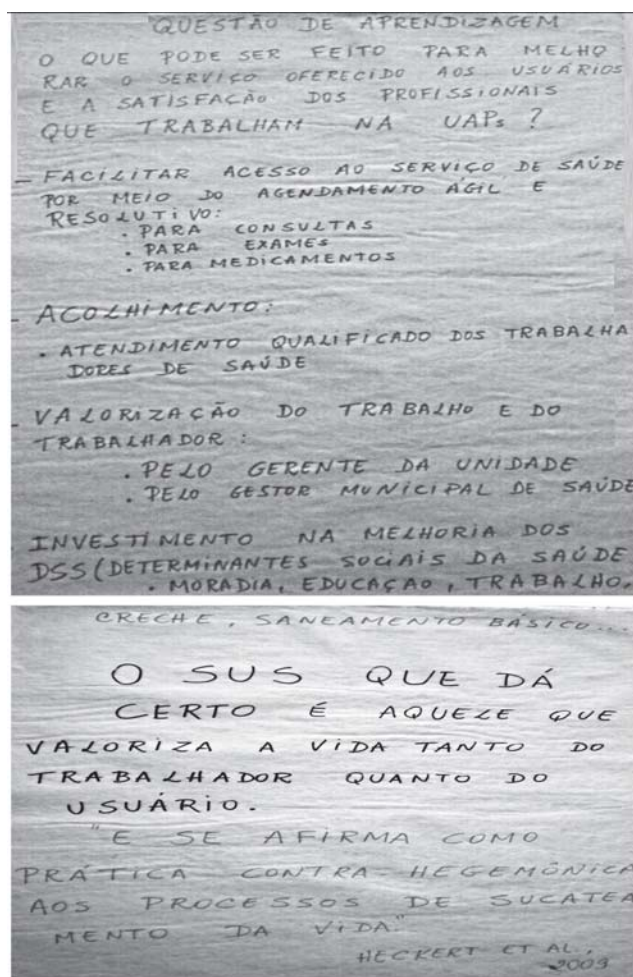 QUESTÃO DE APRENDIZAGEM
O QUE PODE SER FEITO PARA MELHO
RAR O SERVIÇO OFERECIDO AOS USUÁRIOS
E A SATISFAÇÃO DOS PROFISSIONAIS
QUE TRABALHAM NA UAPs ?
- FACILITAR ACESSO AO SERVIÇO DE SAÚDE
POR MEIO DO AGENDAMENTO ÁGIL E
RESOLUTIVO:
. PARA CONSULTAS
. PARA EXAMES
. PARA MEDICAMENTOS
- ACOLHIMENTO:
. ATENDIMENTO QUALIFICADO DOS TRABALHA
DORES DE SAÚDE
- VALORIZAÇÃO DO TRABALHO E DO
TRABALHADOR :
. PELO GERENTE DA UNIDADE
. PELO GESTOR MUNICIPAL DE SAÚDE
INVESTIMENTO NA MELHORIA DOS
DSS (DETERMINANTES SOCIAIS DA SAÚDE
. MORADIA, EDUCAÇÃO, TRABALHO,
CRECHE, SANEAMENTO BÁSICO...
O SUS QUE DÁ
CERTO É AQUELE QUE
VALORIZA A VIDA TANTO DO
TRABALHADOR QUANTO DO
USUÁRIO.
"E SE AFIRMA COMO
PRÁTICA CONTRA-HEGEMÔNICA
AOS PROCESSOS DE SUCATEA
MENTO DA VIDA"
HECKERT ET AL,
2009